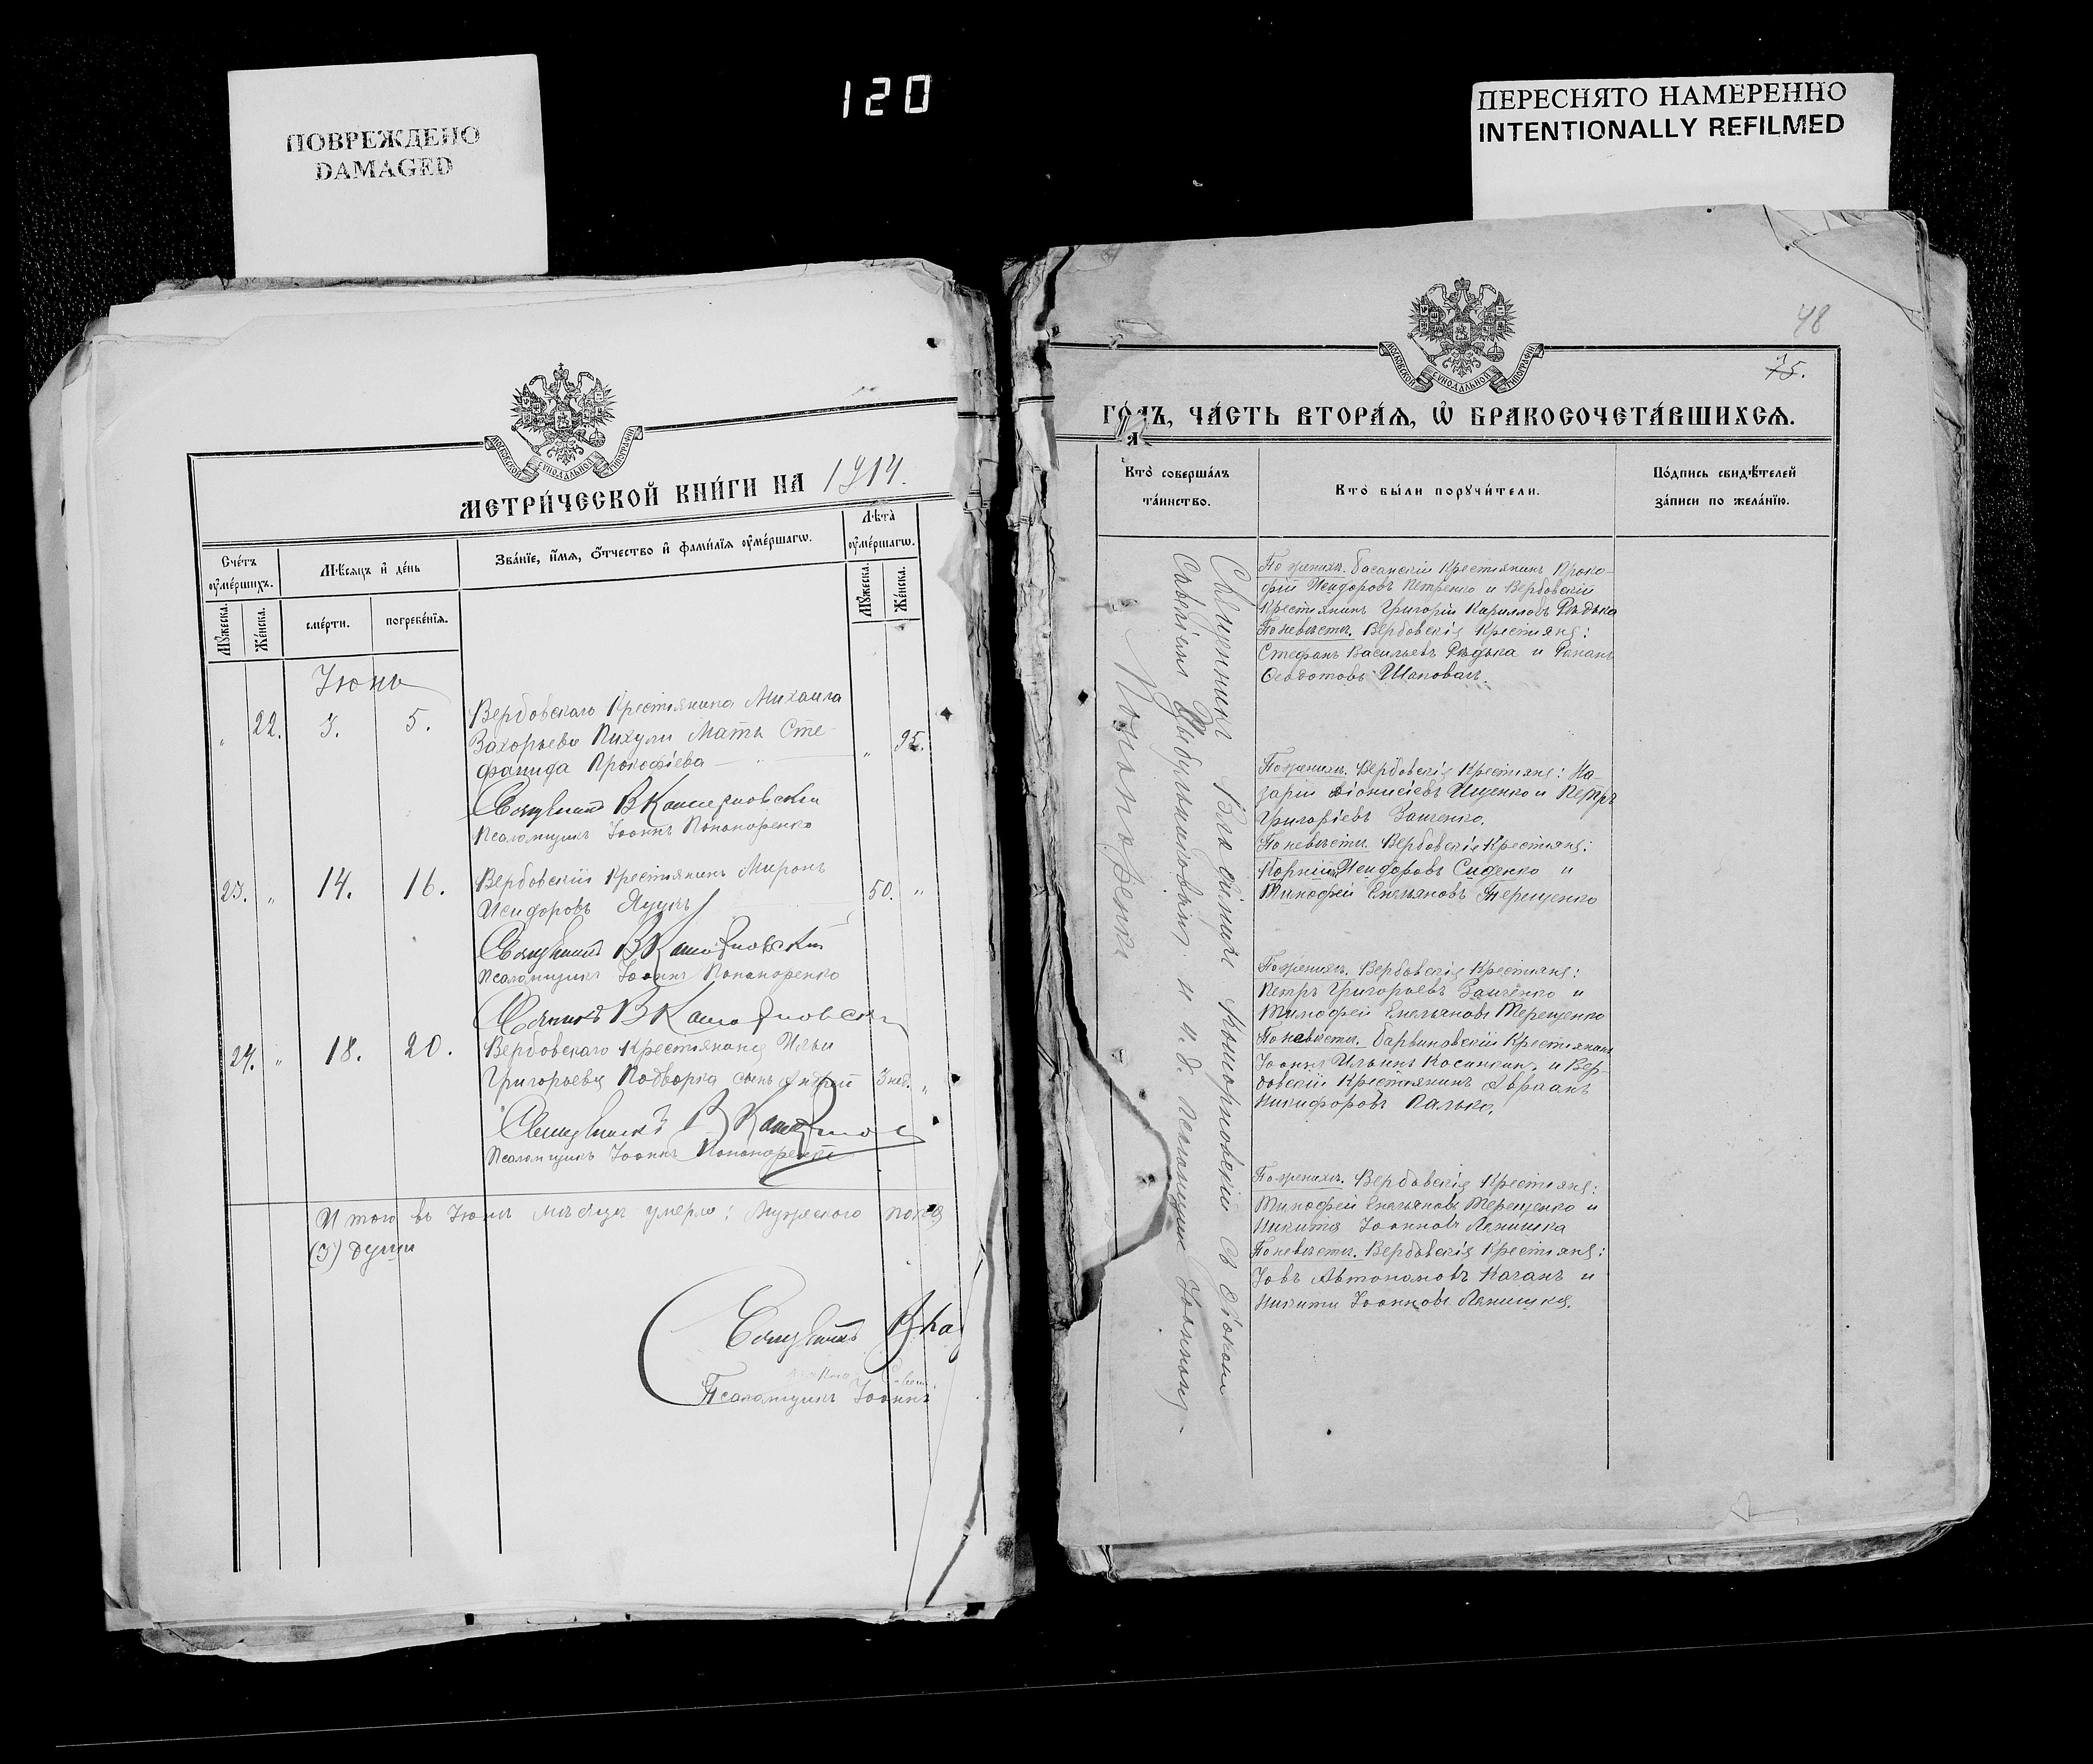 120
ПОВРЕЖДЕНО
DAMAGED
ПЕРЕСНЯТО НАМЕРЕННО
INTENTIONALLY REFILMED
МОСКОВСКОЙ СѴНОДАЛЬНОЙ ТИПОГРАФІИ
МЕТРИ́ЧЕСКОЙ КНИ́ГИ НА 1914.
Сче́тъ оу҆ме́ршихъ.
Мѣ́сяцъ и҆ де́нь
Зва́нїе, и҆́мя, ѻ҆́тчество и҆ фами́лїя оу҆ме́ршагѡ.
Лѣта̀ оу҆ме́ршагѡ.
Мꙋ́жеска.
Же́нска.
сме́рти.
погребе́нїя.
Мꙋ́жеска.
Же́нска.
Іюнь
" 22. 3. 5. Вербовскаго Крестьянина Михаила
Захорьева Пихули Мать Сте-
фанида Прокофіева " 95.
Священникъ В Каморновскій
Псаломщикъ Іоаннъ Пономоренко
23. " 14. 16. Вербовскій Крестьянинъ Миронъ
Исидоровъ 50. "
Священникъ В Каморновскій
Псаломщикъ Іоаннъ Пономоренко
24. " 18. 20. Вербовскаго Крестьянина Ильи
Григорьева Подворка сынъ Андрей 3 нед. "
Священникъ В
Псаломщикъ Іоаннъ Пономоренко
Итого въ Іюнѣ мѣсяцѣ умерло: Мужескаго пола
(3) души
Священникъ
Псаломщикъ Іоаннъ
48
75.
МОСКОВСКОЙ СѴНОДАЛЬНОЙ ТИПОГРАФІИ
ГО́ДЪ, ЧА́СТЬ ВТОРА́Я, Ѡ҆ БРАКОСОЧЕТА́ВШИХСЯ.
Кто̀ соверша́лъ та́инство.
Кто̀ бы́ли порꙋчи́тели.
По́дпись свидѣ́телей за́писи по жела́нїю.
Священникъ Владиміръ Каморновскій съ діакономъ
Савватіемъ и и. д. псаломщика Іоанномъ
Пономоренко
По женихѣ. Басанскій Крестьянинъ Проко-
фій Исидоровъ Петренко и Вербовскій
Крестьянинъ Григорій Кирилловъ Рѣдька
По невѣстѣ. Вербовскія Крестьяне:
Стефанъ Васильевъ Рѣдька и Романъ
Ѳеодотовъ Шаповалъ.
По женихѣ. Вербовскія Крестьяне: На-
зарій Діонисіевъ Ищенко и Петръ
Григоріевъ Защенко.
По невѣстѣ. Вербовскія Крестьяне:
Корнилій Исидоровъ Сиденко и
Тимофей Емельяновъ Терещенко
По женихѣ. Вербовскія Крестьяне:
Петръ Григорьевъ Защенко и
Тимофей Емельяновъ Терещенко
По невѣстѣ. Барвиновскій Крестьянинъ
Іоаннъ Ильинъ Косинкинъ и Вер-
бовскій Крестьянинъ Авраамъ
Никифоровъ Палько.
По женихѣ. Вербовскія Крестьяне:
Тимофей Емельяновъ Терещенко и
Никита Іоанновъ Лямишка
По невѣстѣ. Вербовскія Крестьяне:
Іовъ Автономовъ Качанъ и
Никита Іоанновъ Лямишка.